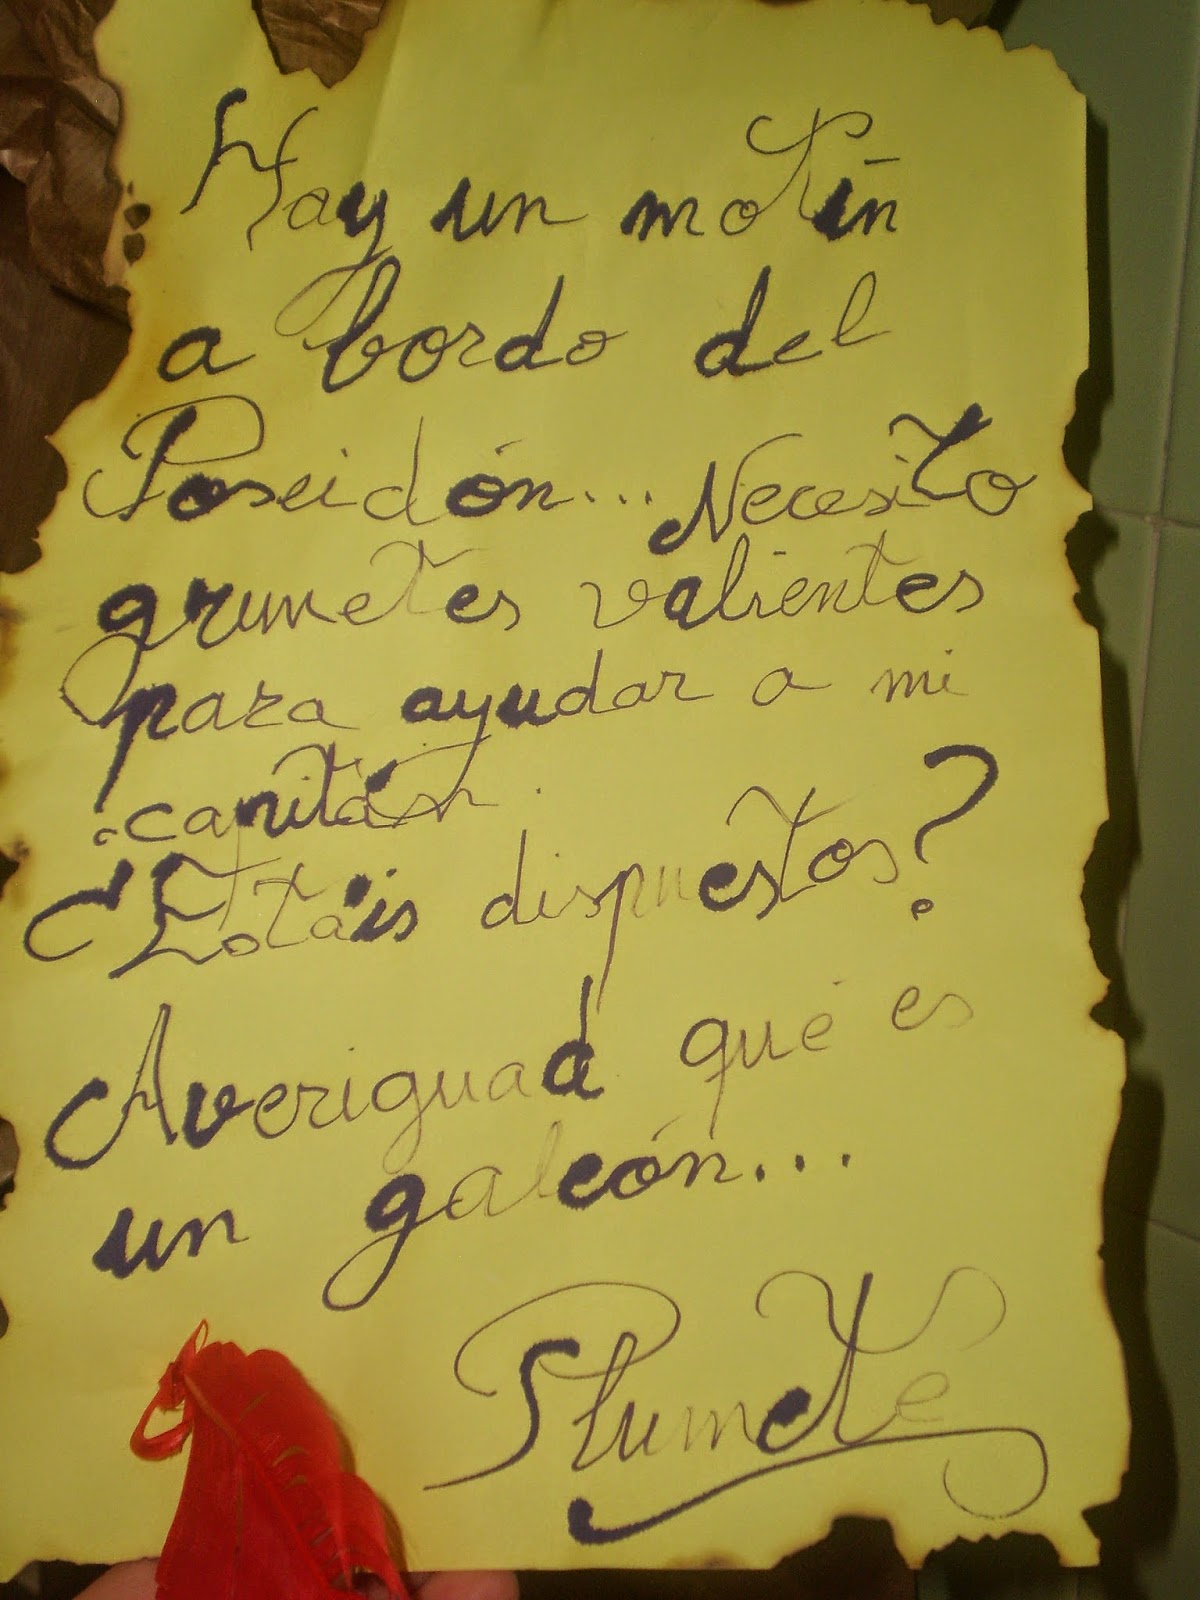 Hay un motín
a bordo del
Poseidón... Necesito
grumetes valientes
para ayudar a mi
capitán.
¿Estáis dispuestos?
Averiguad qué es
un galeón...
Plumeté